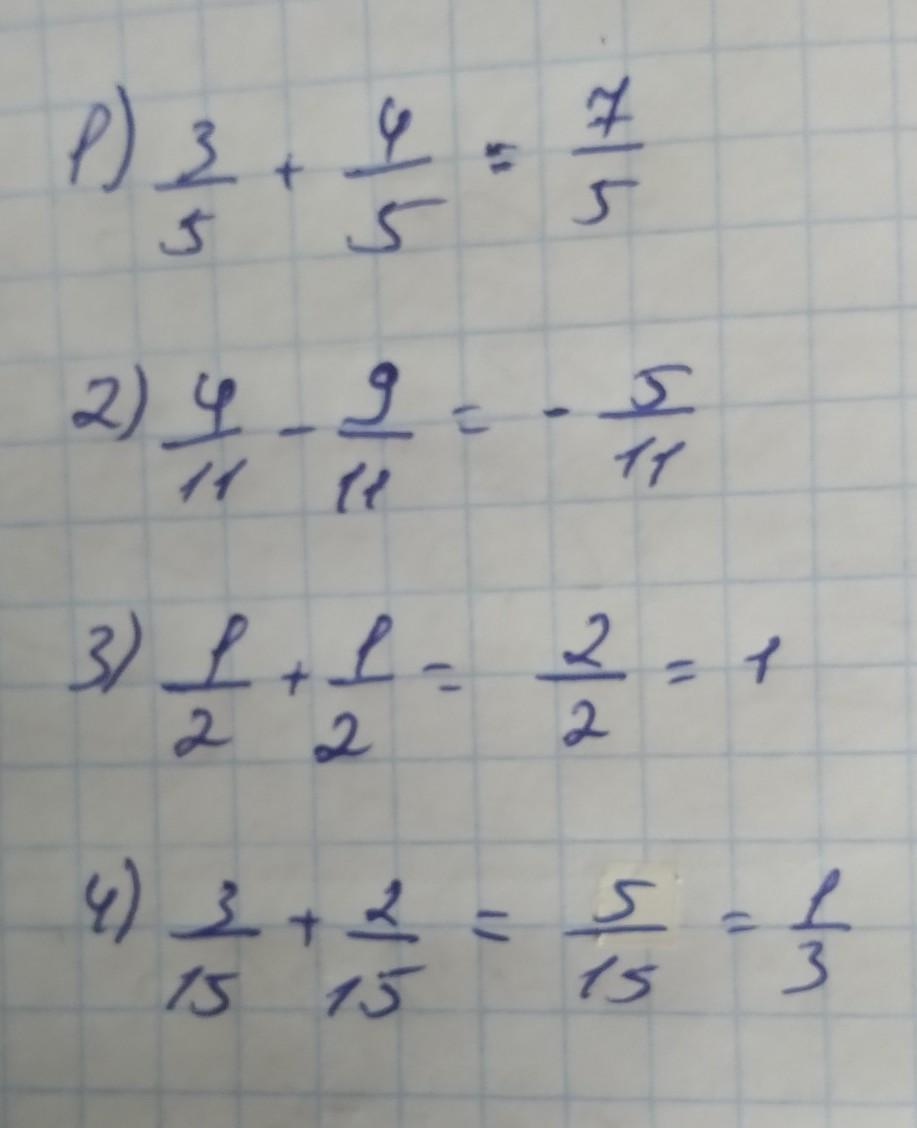 1) 3/5 + 4/5 = 7/5
2) 4/11 - 9/11 = - 5/11
3) 1/2 + 1/2 = 2/2 = 1
4) 3/15 + 2/15 = 5/15 = 1/3